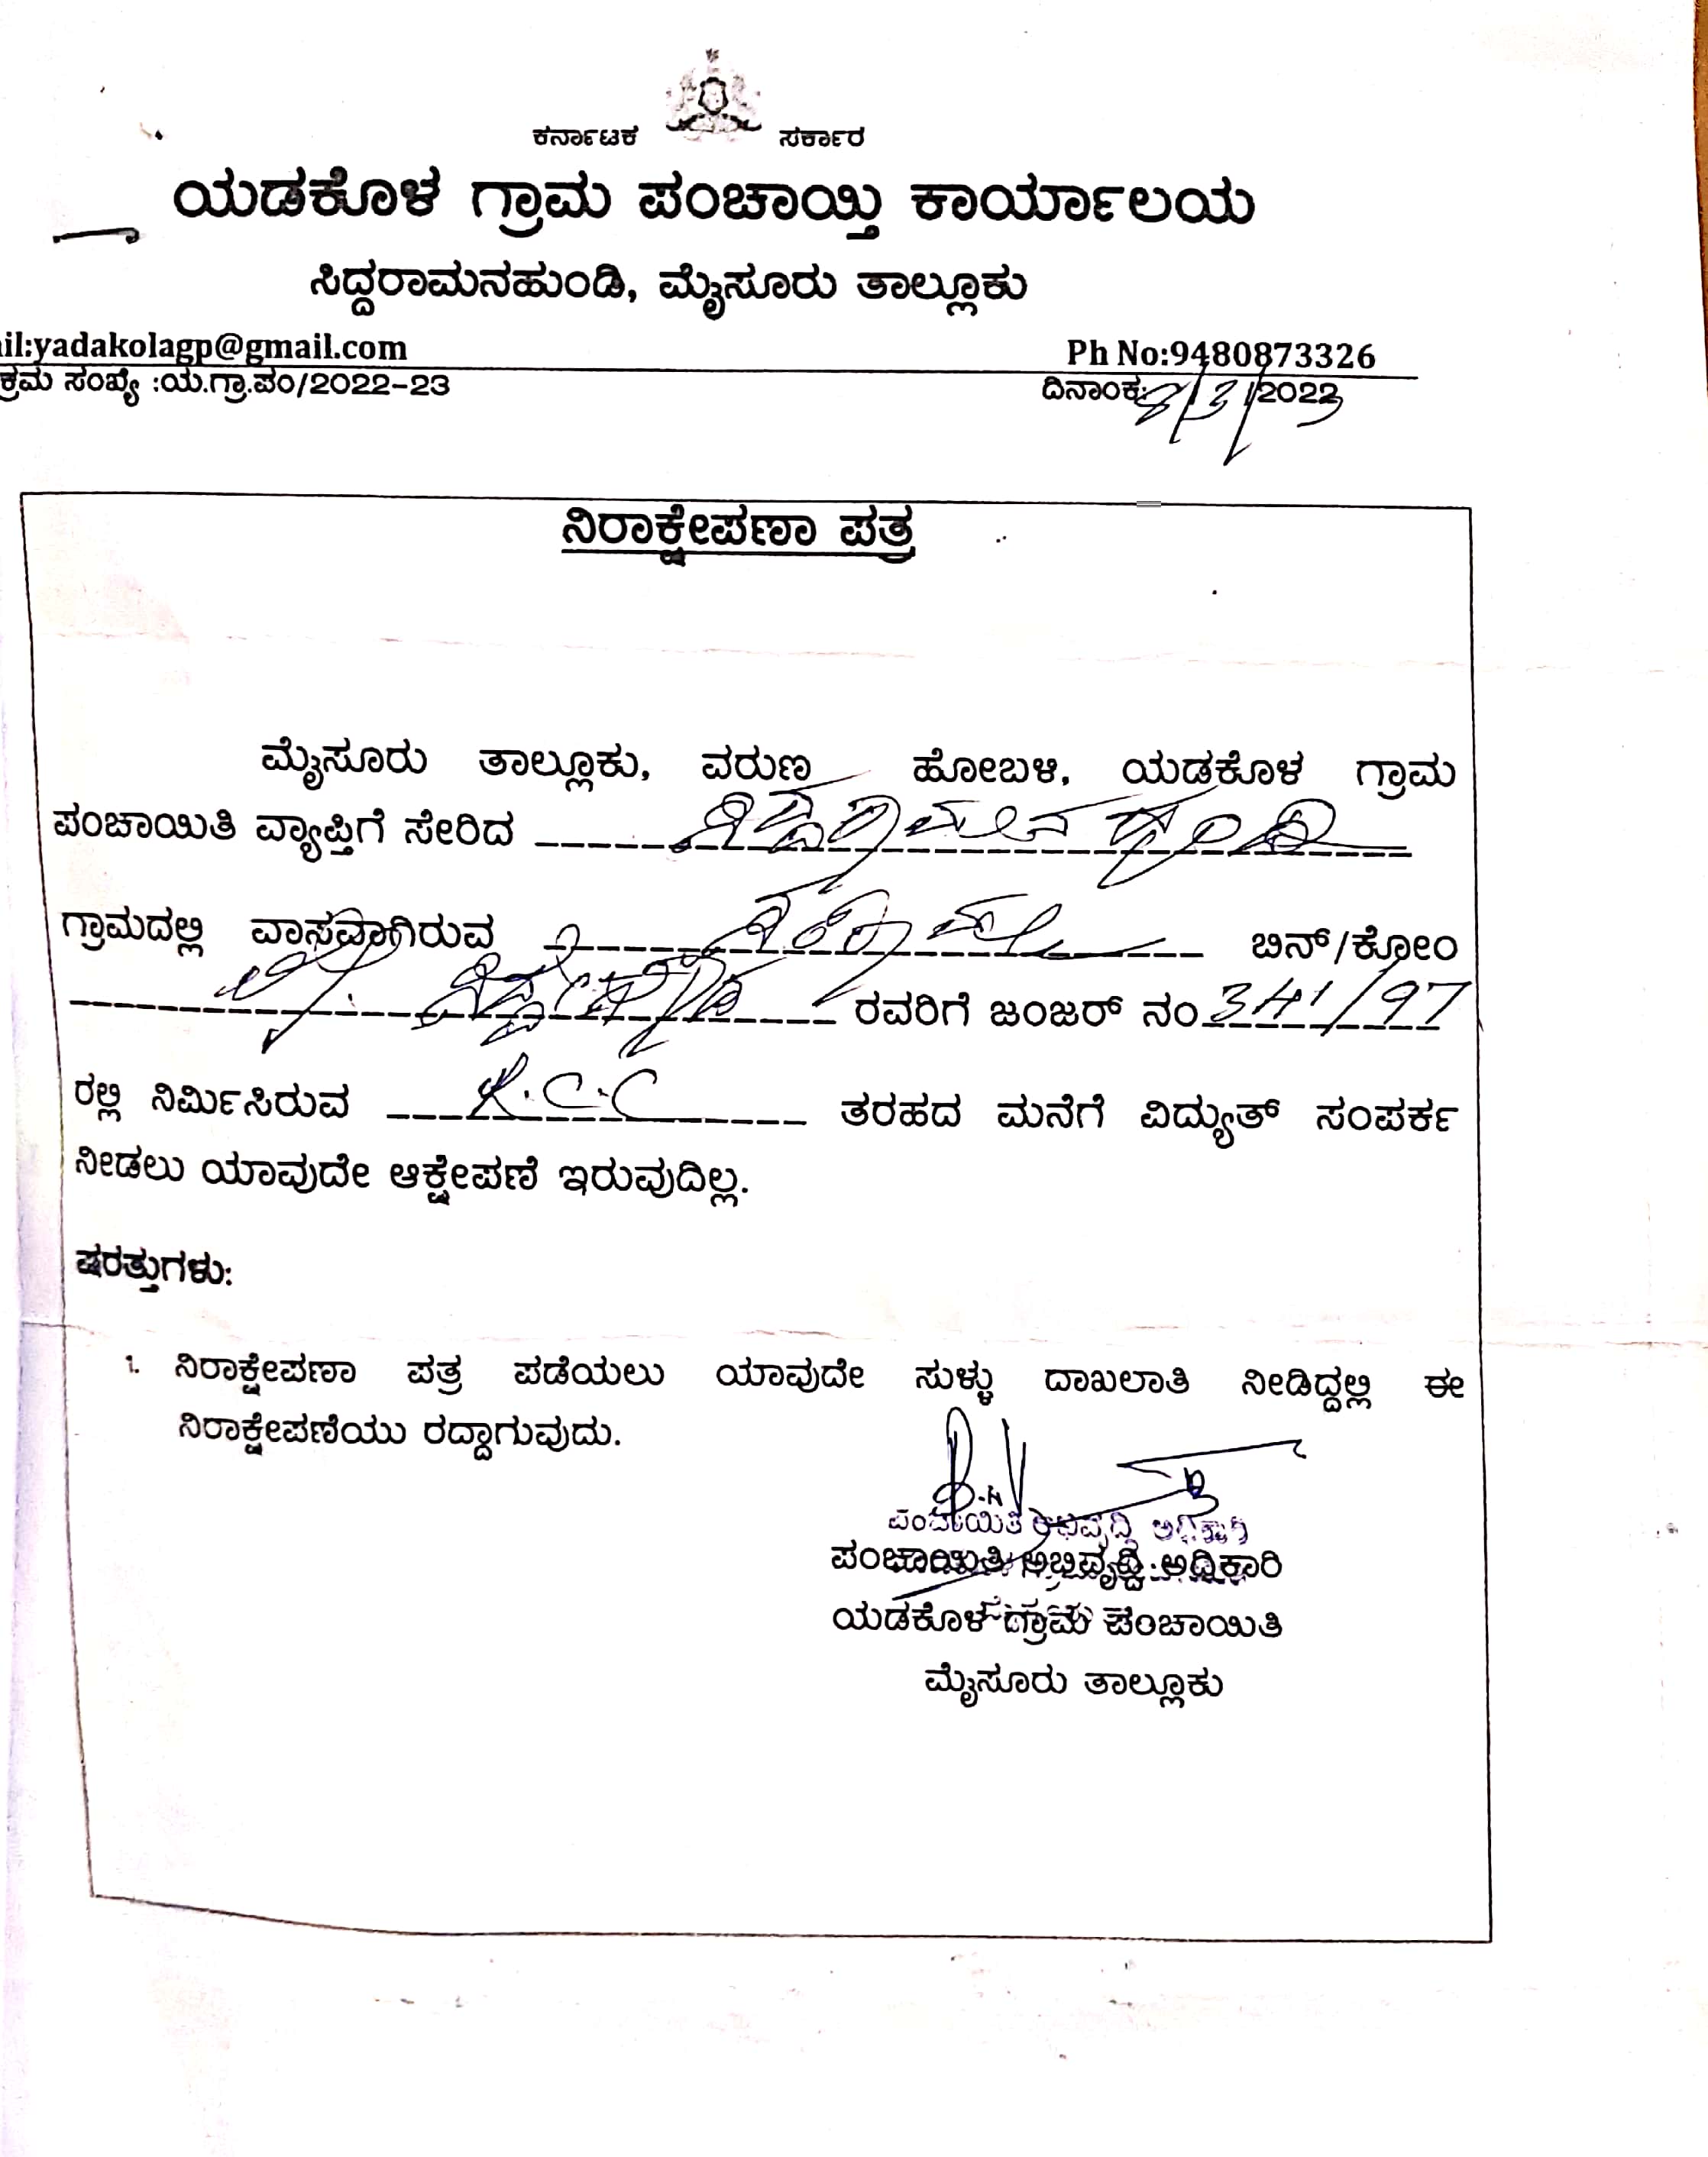 ಕರ್ನಾಟಕ ಸರ್ಕಾರ
ಯಡಕೊಳ ಗ್ರಾಮ ಪಂಚಾಯ್ತಿ ಕಾರ್ಯಾಲಯ
ಸಿದ್ದರಾಮನಹುಂಡಿ, ಮೈಸೂರು ತಾಲ್ಲೂಕು
il:yadakolagp@gmail.com Ph No:9480873326
ಕ್ರಮ ಸಂಖ್ಯೆ :ಯ.ಗ್ರಾ.ಪಂ/2022-23 ದಿನಾಂಕ: 8/3/2023
ನಿರಾಕ್ಷೇಪಣಾ ಪತ್ರ
ಮೈಸೂರು ತಾಲ್ಲೂಕು, ವರುಣ ಹೋಬಳಿ, ಯಡಕೊಳ ಗ್ರಾಮ
ಪಂಚಾಯಿತಿ ವ್ಯಾಪ್ತಿಗೆ ಸೇರಿದ ಸಿದ್ದರಾಮನಹುಂಡಿ
ಗ್ರಾಮದಲ್ಲಿ ವಾಸವಾಗಿರುವ ಬಿನ್/ಕೋಂ
ರವರಿಗೆ ಜಂಜರ್ ನಂ 341/97
ರಲ್ಲಿ ನಿರ್ಮಿಸಿರುವ R.C.C ತರಹದ ಮನೆಗೆ ವಿದ್ಯುತ್ ಸಂಪರ್ಕ
ನೀಡಲು ಯಾವುದೇ ಆಕ್ಷೇಪಣೆ ಇರುವುದಿಲ್ಲ.
ಷರತ್ತುಗಳು:
1. ನಿರಾಕ್ಷೇಪಣಾ ಪತ್ರ ಪಡೆಯಲು ಯಾವುದೇ ಸುಳ್ಳು ದಾಖಲಾತಿ ನೀಡಿದ್ದಲ್ಲಿ ಈ
ನಿರಾಕ್ಷೇಪಣೆಯು ರದ್ದಾಗುವುದು.
ಪಂಚಾಯಿತಿ ಅಭಿವೃದ್ಧಿ ಅಧಿಕಾರಿ
ಪಂಚಾಯಿತಿ ಅಭಿವೃದ್ಧಿ ಅಧಿಕಾರಿ
ಯಡಕೊಳ ಗ್ರಾಮ ಪಂಚಾಯಿತಿ
ಮೈಸೂರು ತಾಲ್ಲೂಕು